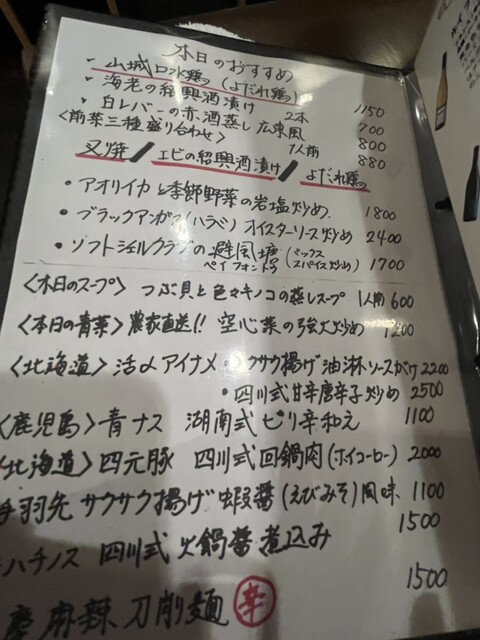 本日のおすすめ
・山城口水鶏（よだれ鶏） 1150
・海老の紹興酒漬け 2本 700
・白レバーの赤酒蒸し 広東風 800
〈前菜三種盛り合わせ〉 1人前 880
叉焼 / エビの紹興酒漬け / よだれ鶏
・アオリイカと季節野菜の岩塩炒め 1800
・ブラックアンガス（ハラミ）オイスターソース炒め 2400
・ソフトシェルクラブの避風塘（ミックススパイス炒め） 1700
ベイフォントゥ
〈本日のスープ〉 つぶ貝と色々キノコの蒸しスープ 1人前 600
〈本日の青菜〉農家直送!! 空心菜の強火炒め 1200
〈北海道〉活〆アイナメ・サクサク揚げ油淋ソースがけ 2200
・四川式甘辛唐辛子炒め 2500
〈鹿児島〉青ナス 湖南式ピリ辛和え 1100
〈北海道〉四元豚 四川式回鍋肉（ホイコーロー） 2000
手羽先サクサク揚げ蝦醤（えびみそ）風味 1100
ハチノス 四川式火鍋醤煮込み 1500
麻辣刀削麺 辛 1500